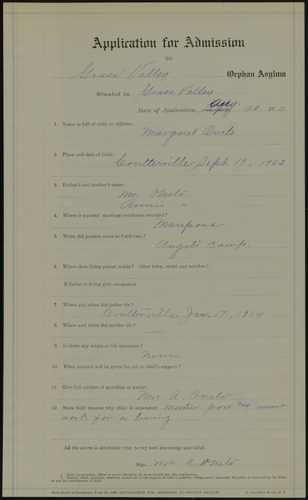 Application for Admission
TO
Grass Valley Orphan Asylum
Situated in Grass Valley
Date of Application, Aug 22 19
1. Name in full of child or children.
Margaret Oneto
2. Place and date of birth.
Coulterville Sept. 19, 1902
3. Father's and mother's name
Mr. Oneto
Annie "
4. Where is parents' marriage certificate recorded?
Mariposa
5. When did parents come to California?
Angels Camp.
6. Where does living parent reside? (Give town, street and number.)
If father is living give occupation.
7. Where and when did father die?
Coulterville, Jan. 17, 1904
8. Where and when did mother die?
9. Is there any estate or life insurance?
None
10. What amount will be given for aid to child's support?
11. Give full address of guardian or parent.
Mrs A. Oneto
12. State fully reasons why child is dependent. Mother poor and must
work for a living
All the above is absolutely true, to my best knowledge and belief.
Sign Mrs A Oneto